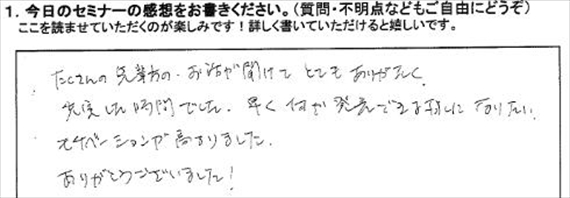 1. 今日のセミナーの感想をお書きください。(質問・不明点などもご自由にどうぞ)
ここを読ませていただくのが楽しみです!詳しく書いていただけると嬉しいです。
たくさんの先輩方の、お話が聞けて とてもありがたく、
充実した時間でした。早く何か発表できる様に なりたい
モチベーションが高まりました。
ありがとうございました!